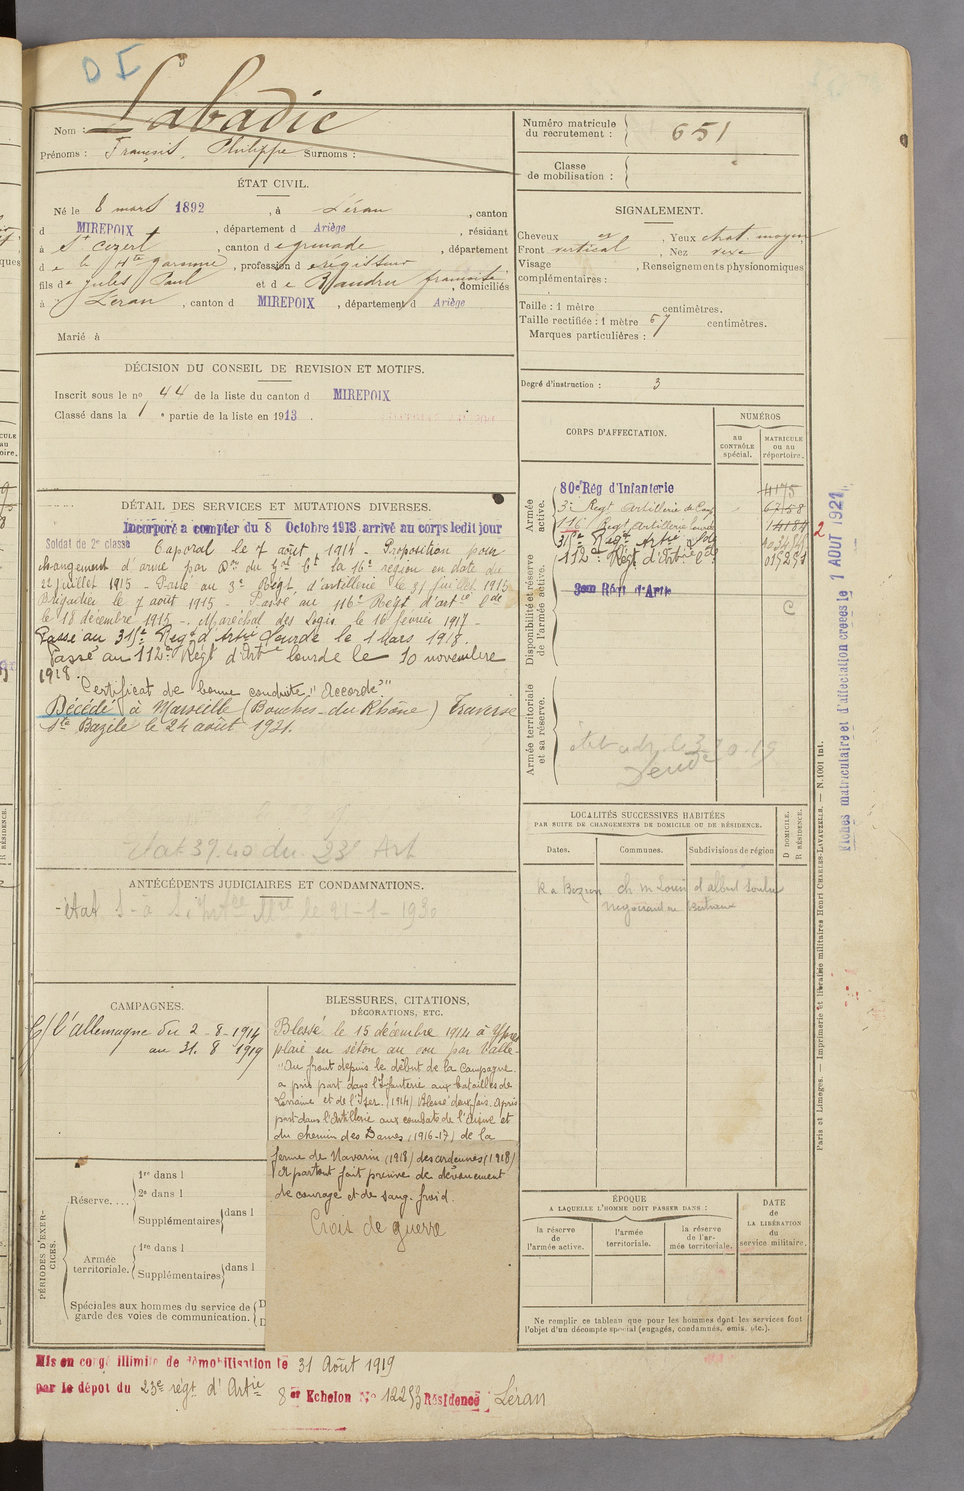 DF
Nom : Labadie
Prénoms : François, Philippe Surnoms :
ÉTAT CIVIL.
Né le 8 mars 1892, à Léran, canton
d MIREPOIX, département d Ariège, résidant
à St Cezert, canton de grenade, département
de la Hte garonne, profession de régisseur
fils de Jules Paul et de Baudru françoise, domiciliés
à Léran, canton d MIREPOIX, département d Ariège
Marié à
DÉCISION DU CONSEIL DE REVISION ET MOTIFS.
Inscrit sous le no 44 de la liste du canton d MIREPOIX
Classé dans la 1e partie de la liste en 1913.
DÉTAIL DES SERVICES ET MUTATIONS DIVERSES.
Incorporé à compter du 8 Octobre 1913 arrivé au corps ledit jour
Soldat de 2e classe Caporal le 7 août 1914 - Proposition pour
changement d'arme par Don du Gral Ct la 16e région en date du
22 juillet 1915 - Passé au 3e Régt d'artillerie le 31 juillet 1915
Brigadier le 7 août 1915 - Passé au 116e Régt d'artie lde
le 18 décembre 1915 - Maréchal des Logis le 16 février 1917 -
Passé au 315e Régt d'Artie Lourde le 1 Mars 1918.
Passé au 112e Régt d'Artie lourde le 10 novembre
1918.
Certificat de bonne conduite "Accordé"
Décédé à Marseille (Bouches-du-Rhône) Traverse
Ste Bazile le 24 août 1921.
ANTÉCÉDENTS JUDICIAIRES ET CONDAMNATIONS.
état le 21-1-1930
CAMPAGNES.
C/ l'allemagne du 2-8-1914
au 31. 8 1919
BLESSURES, CITATIONS,
DÉCORATIONS, ETC.
Blessé le 15 décembre 1914 à Ypres
plaie en séton au cou par balle -
"Au front depuis le début de la Campagne.
a pris part dans l'Infanterie aux batailles de
Lorraine et de l'Yser (1914) Blessé deux fois. Après
part dans l'Artillerie aux combats de l'Aisne et
du chemin des Dames (1916-17) de la
ferme de Navarin (1918) des ardennes (1918)
A partout fait preuve de dévouement
de courage et de sang-froid.
Croix de guerre
PÉRIODES D'EXERCICES.
Réserve....
1re dans l
2e dans l
Supplémentaires dans l
Armée territoriale.
1re dans l
Supplémentaires dans l
Spéciales aux hommes du service de
garde des voies de communication.
Mis en congé illimité de démobilisation le 31 Août 1919
par le dépôt du 23e régt d'Artie 8er Echelon No 12253 Résidence Léran
Numéro matricule du recrutement : 651
Classe de mobilisation :
SIGNALEMENT.
Cheveux , Yeux chat. moyen
Front vertical, Nez vexe
Visage , Renseignements physionomiques
complémentaires :
Taille : 1 mètre centimètres.
Taille rectifiée : 1 mètre 67 centimètres.
Marques particulières :
Degré d'instruction : 3
CORPS D'AFFECTATION.
NUMÉROS
au CONTRÔLE spécial.
MATRICULE ou au répertoire.
Armée active.
Disponibilité et réserve de l'armée active.
Armée territoriale et sa réserve.
80e Rég d'Infanterie 4175
3e Régt Artillerie de Camp 6758
116e Régt Artillerie lourde 14184
315e Régt Artie
112e Régt d'Artie lde
3eme Régt d'Artie
C
2
Fiches matriculaire et d'affectation créées le 1 AOUT 1921
LOCALITÉS SUCCESSIVES HABITÉES
PAR SUITE DE CHANGEMENTS DE DOMICILE OU DE RÉSIDENCE.
Dates.
Communes.
Subdivisions de région
D DOMICILE.
R RÉSIDENCE.
ÉPOQUE
A LAQUELLE L'HOMME DOIT PASSER DANS :
la réserve de l'armée active.
l'armée territoriale.
la réserve de l'armée territoriale.
DATE de LA LIBÉRATION du service militaire.
Ne remplir ce tableau que pour les hommes dont les services font
l'objet d'un décompte spécial (engagés, condamnés, omis, etc.).
Paris et Limoges. — Imprimerie et librairie militaires Henri CHARLES-LAVAUZELLE. — N. 1001 int.